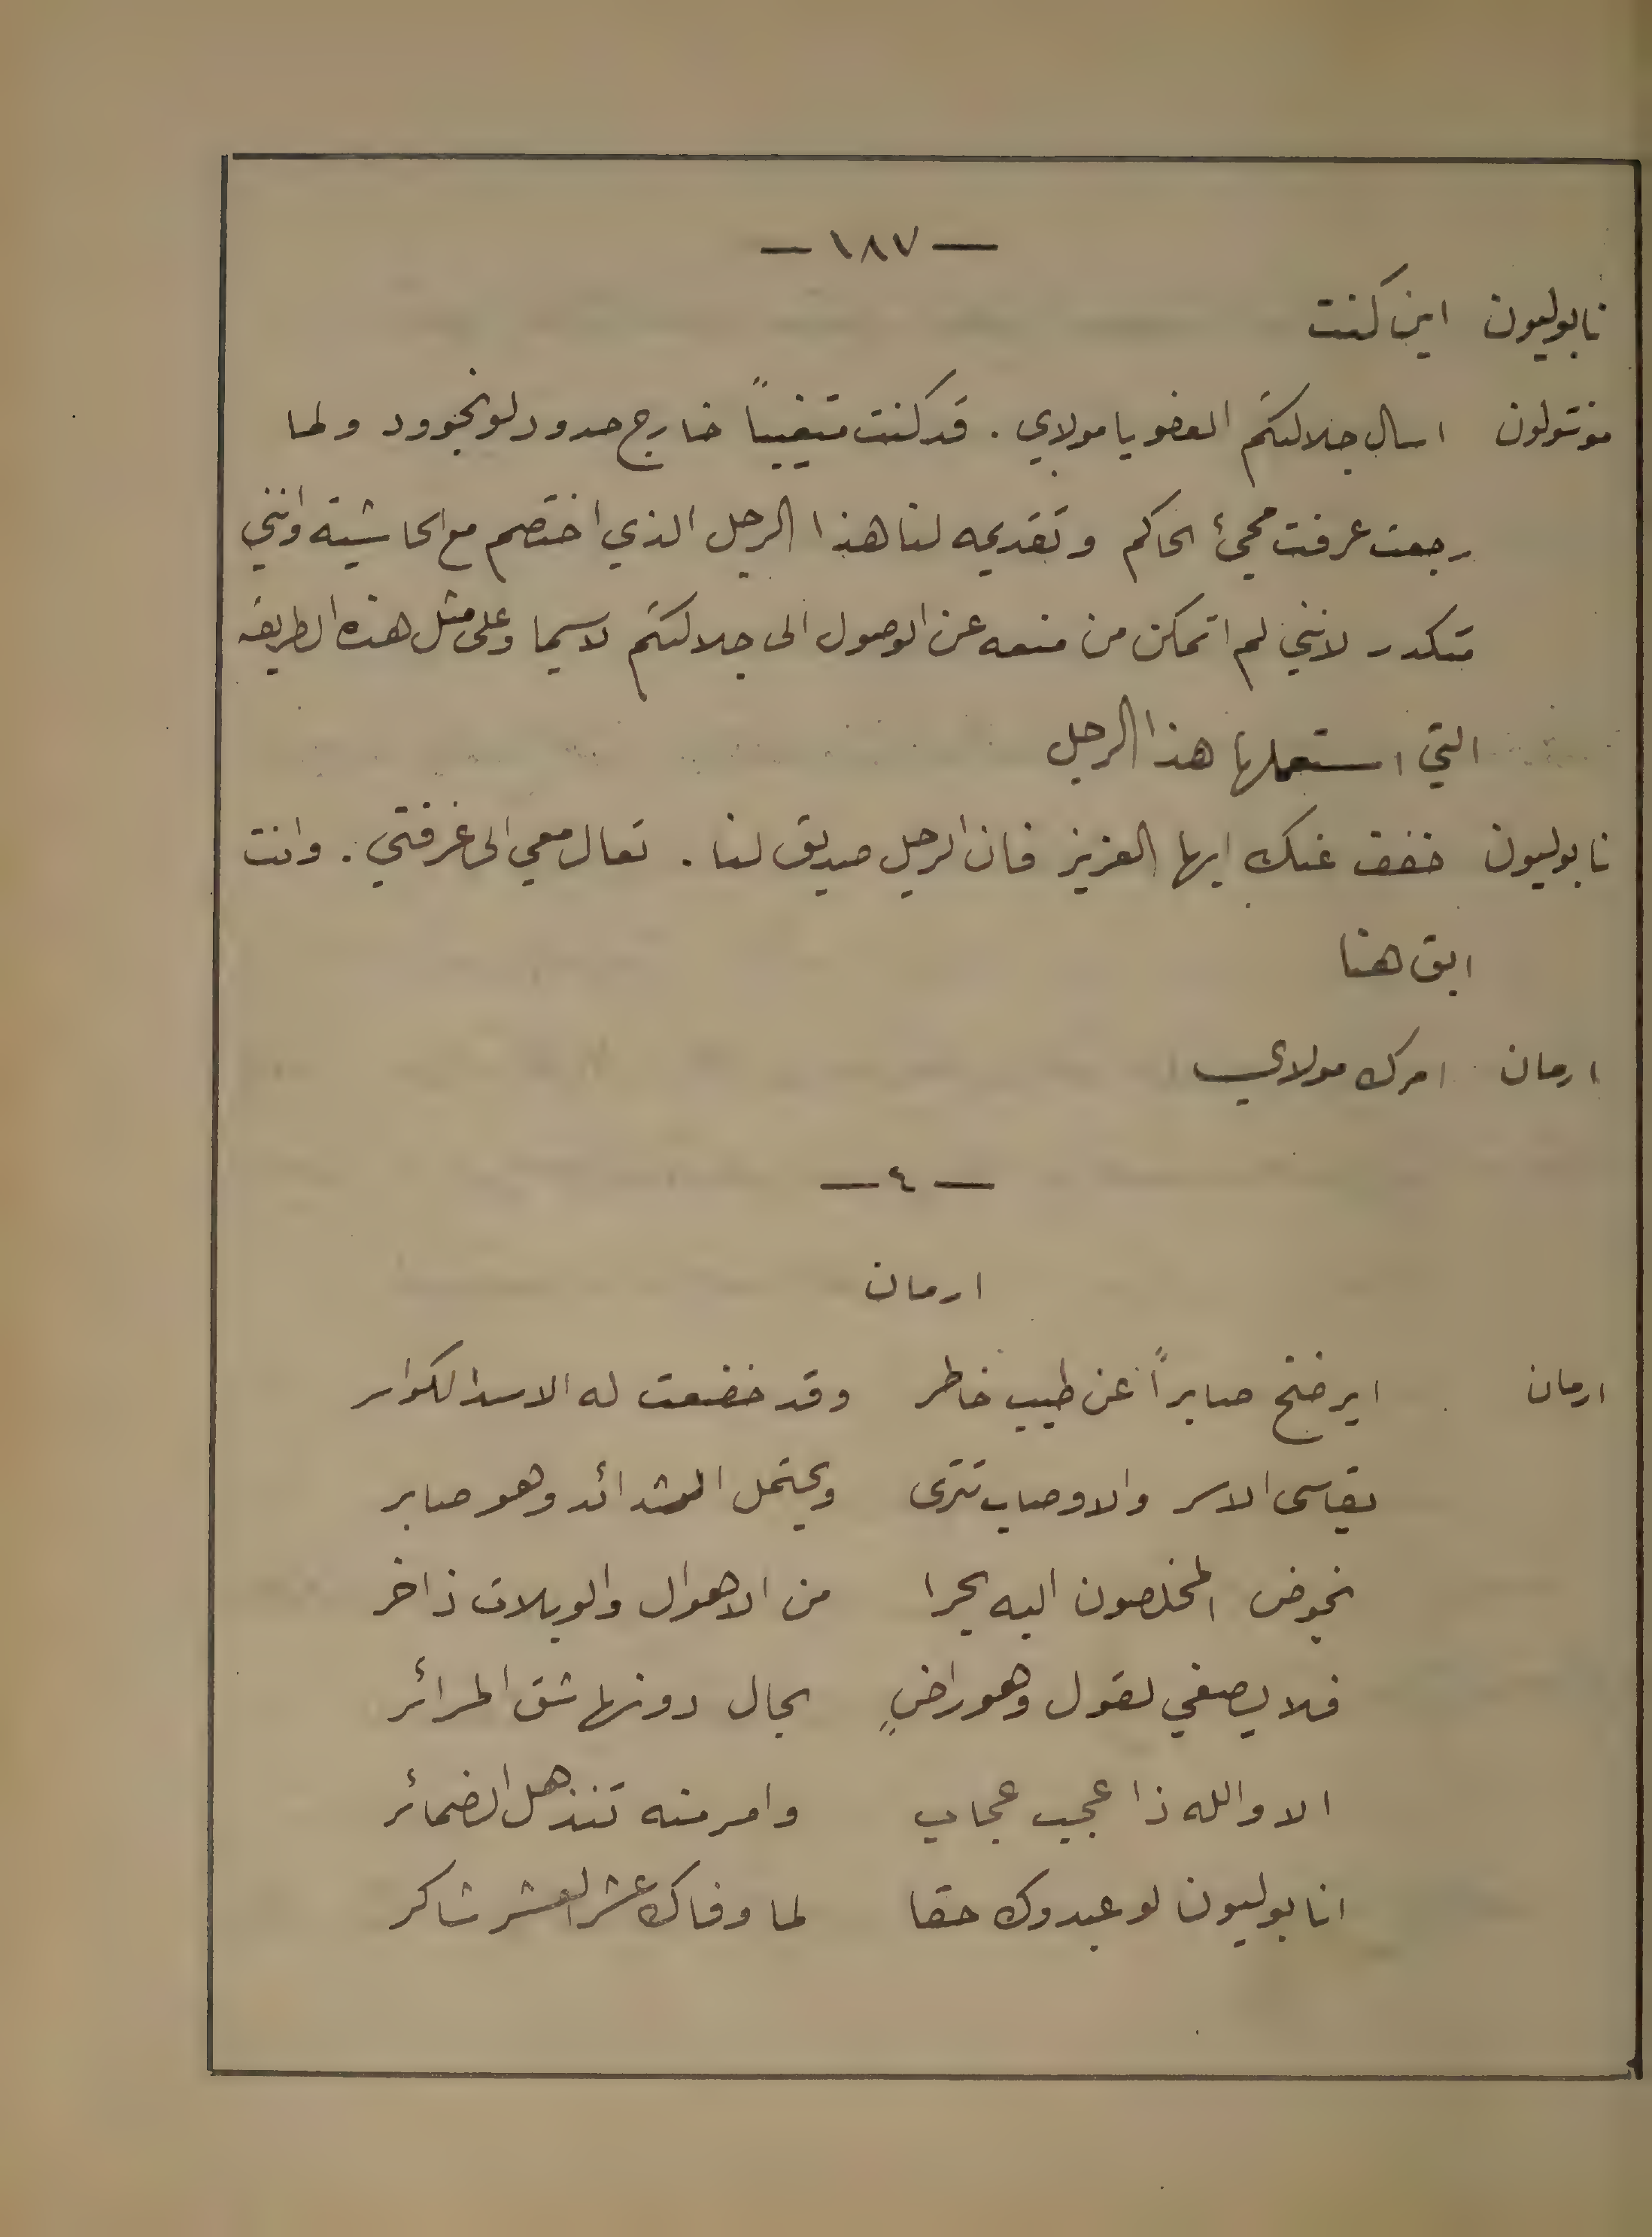 — ١٨٧ —
نابوليون اين كنت
مونتولون اسال جلالتكم العفو يا مولاي . قد كنت متغيباً خارج حدود لونجوود ولما
رجعت عرفت مجيئ الحاكم وتقديمه لنا هذا الرجل الذي اختصم مع الحاشية وانني
متكدر لانني لم اتمكن من منعه عن الوصول الى جلالتكم لاسيما وعلى مثل هذه الطريقة
التي استعملها هذا الرجل
نابوليون خفف عنك ايها العزيز فان الرجل صديق لنا . تعال معي الى غرفتي . وانت
ابق هنا
ارمان امرك مولاي
— ٤ —
ارمان
ارمان ايرضخ صابراً عن طيب خاطر وقد خضعت له الاسد الكواسر
يقاسى الاسر والاوصاب تترى ويحتمل الشدائد وهو صابر
نخوض المخلصون اليه بحرا من الاهوال والويلات ذاخر
فلا يصغي لقول وهو راضٍ بحال دونها شق المرائر
الا والله ذا عجب عجاب وامر منه تنذهل الضمائر
انابوليون لو عبدوك حقا لما وفاك عشر العشر شاكر